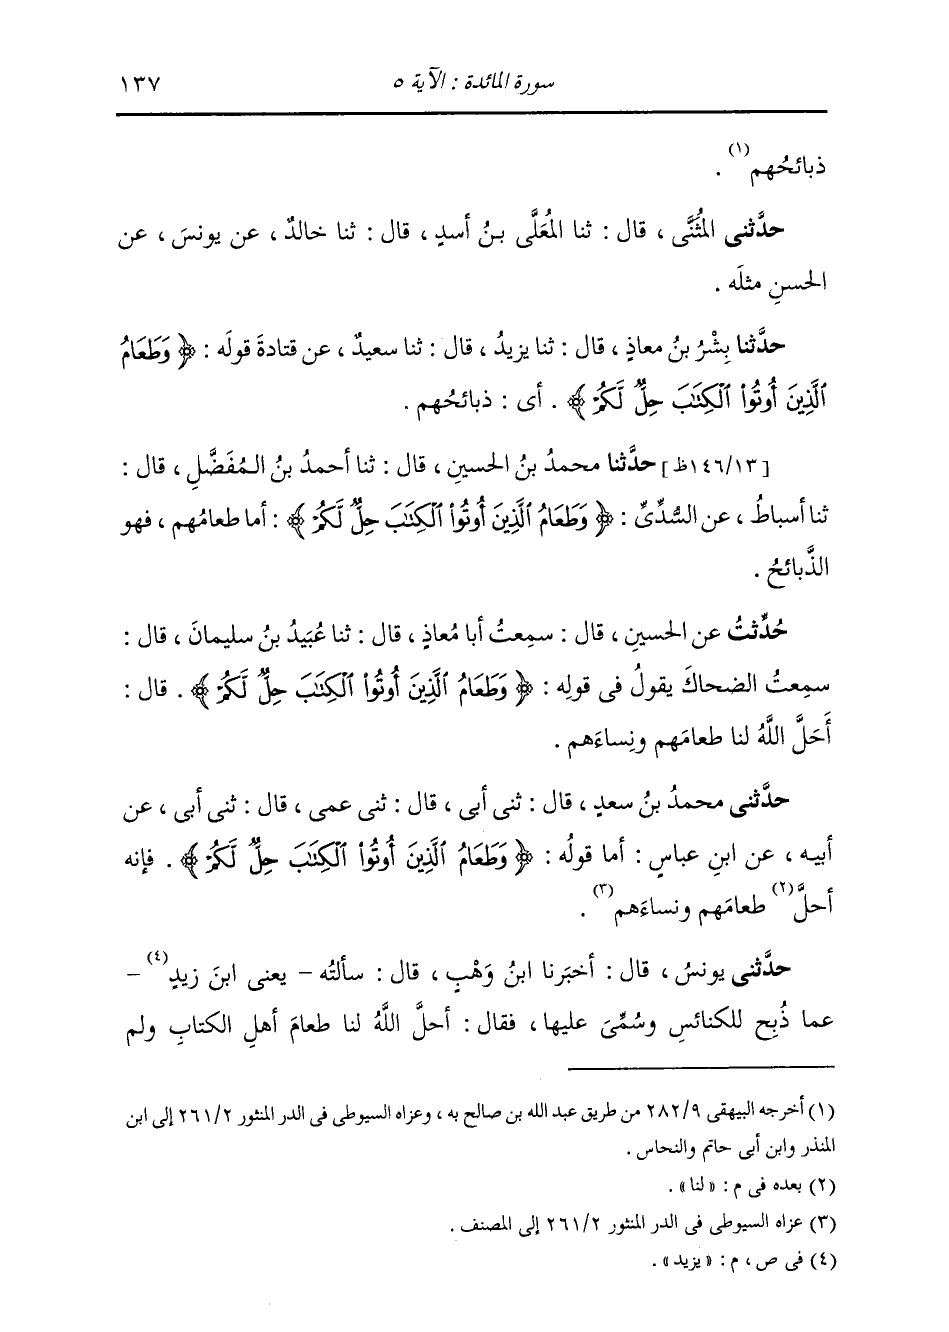 سورة المائدة : الآية ٥ ١٣٧
ذبائحُهم(١) .
حدَّثنى المُثَنَّى ، قال : ثنا المُعَلَّى بنُ أسدٍ ، قال : ثنا خالدٌ ، عن يونسَ ، عن
الحسنِ مثلَه .
حدَّثنا بِشْرُ بنُ معاذٍ ، قال : ثنا يزيدُ ، قال : ثنا سعيدٌ ، عن قتادةَ قولَه : ﴿ وَطَعَامُ
ٱلَّذِينَ أُوتُوا۟ ٱلْكِتَٰبَ حِلٌّ لَّكُمْ ﴾ . أى : ذبائحُهم .
[١٤٦/١٣ظ] حدَّثنا محمدُ بنُ الحسينِ ، قال : ثنا أحمدُ بنُ المُفَضَّلِ ، قال :
ثنا أسباطُ ، عن السُّدِّىِّ : ﴿ وَطَعَامُ ٱلَّذِينَ أُوتُوا۟ ٱلْكِتَٰبَ حِلٌّ لَّكُمْ ﴾ : أما طعامُهم ، فهو
الذَّبائحُ .
حُدِّثتُ عن الحسينِ ، قال : سمِعتُ أبا مُعاذٍ ، قال : ثنا عُبَيدُ بنُ سليمانَ ، قال :
سمِعتُ الضحاكَ يقولُ فى قولِه : ﴿ وَطَعَامُ ٱلَّذِينَ أُوتُوا۟ ٱلْكِتَٰبَ حِلٌّ لَّكُمْ ﴾ . قال :
أَحَلَّ اللَّهُ لنا طعامَهم ونِساءَهم .
حدَّثنى محمدُ بنُ سعدٍ ، قال : ثنى أبى ، قال : ثنى عمى ، قال : ثنى أبى ، عن
أبيه ، عن ابنِ عباسٍ : أما قولُه : ﴿ وَطَعَامُ ٱلَّذِينَ أُوتُوا۟ ٱلْكِتَٰبَ حِلٌّ لَّكُمْ ﴾ . فإنه
أحلَّ(٢) طعامَهم ونساءَهم(٣) .
حدَّثنى يونسُ ، قال : أخبَرنا ابنُ وَهْبٍ ، قال : سألتُه – يعنى ابنَ زيدٍ(٤) –
عما ذُبِح للكنائسِ وسُمِّىَ عليها ، فقال : أحلَّ اللَّهُ لنا طعامَ أهلِ الكتابِ ولم
(١) أخرجه البيهقى ٢٨٢/٩ من طريق عبد الله بن صالح به ، وعزاه السيوطى فى الدر المنثور ٢٦١/٢ إلى ابن
المنذر وابن أبى حاتم والنحاس .
(٢) بعده فى م : « لنا » .
(٣) عزاه السيوطى فى الدر المنثور ٢٦١/٢ إلى المصنف .
(٤) فى ص ، م : « يزيد » .